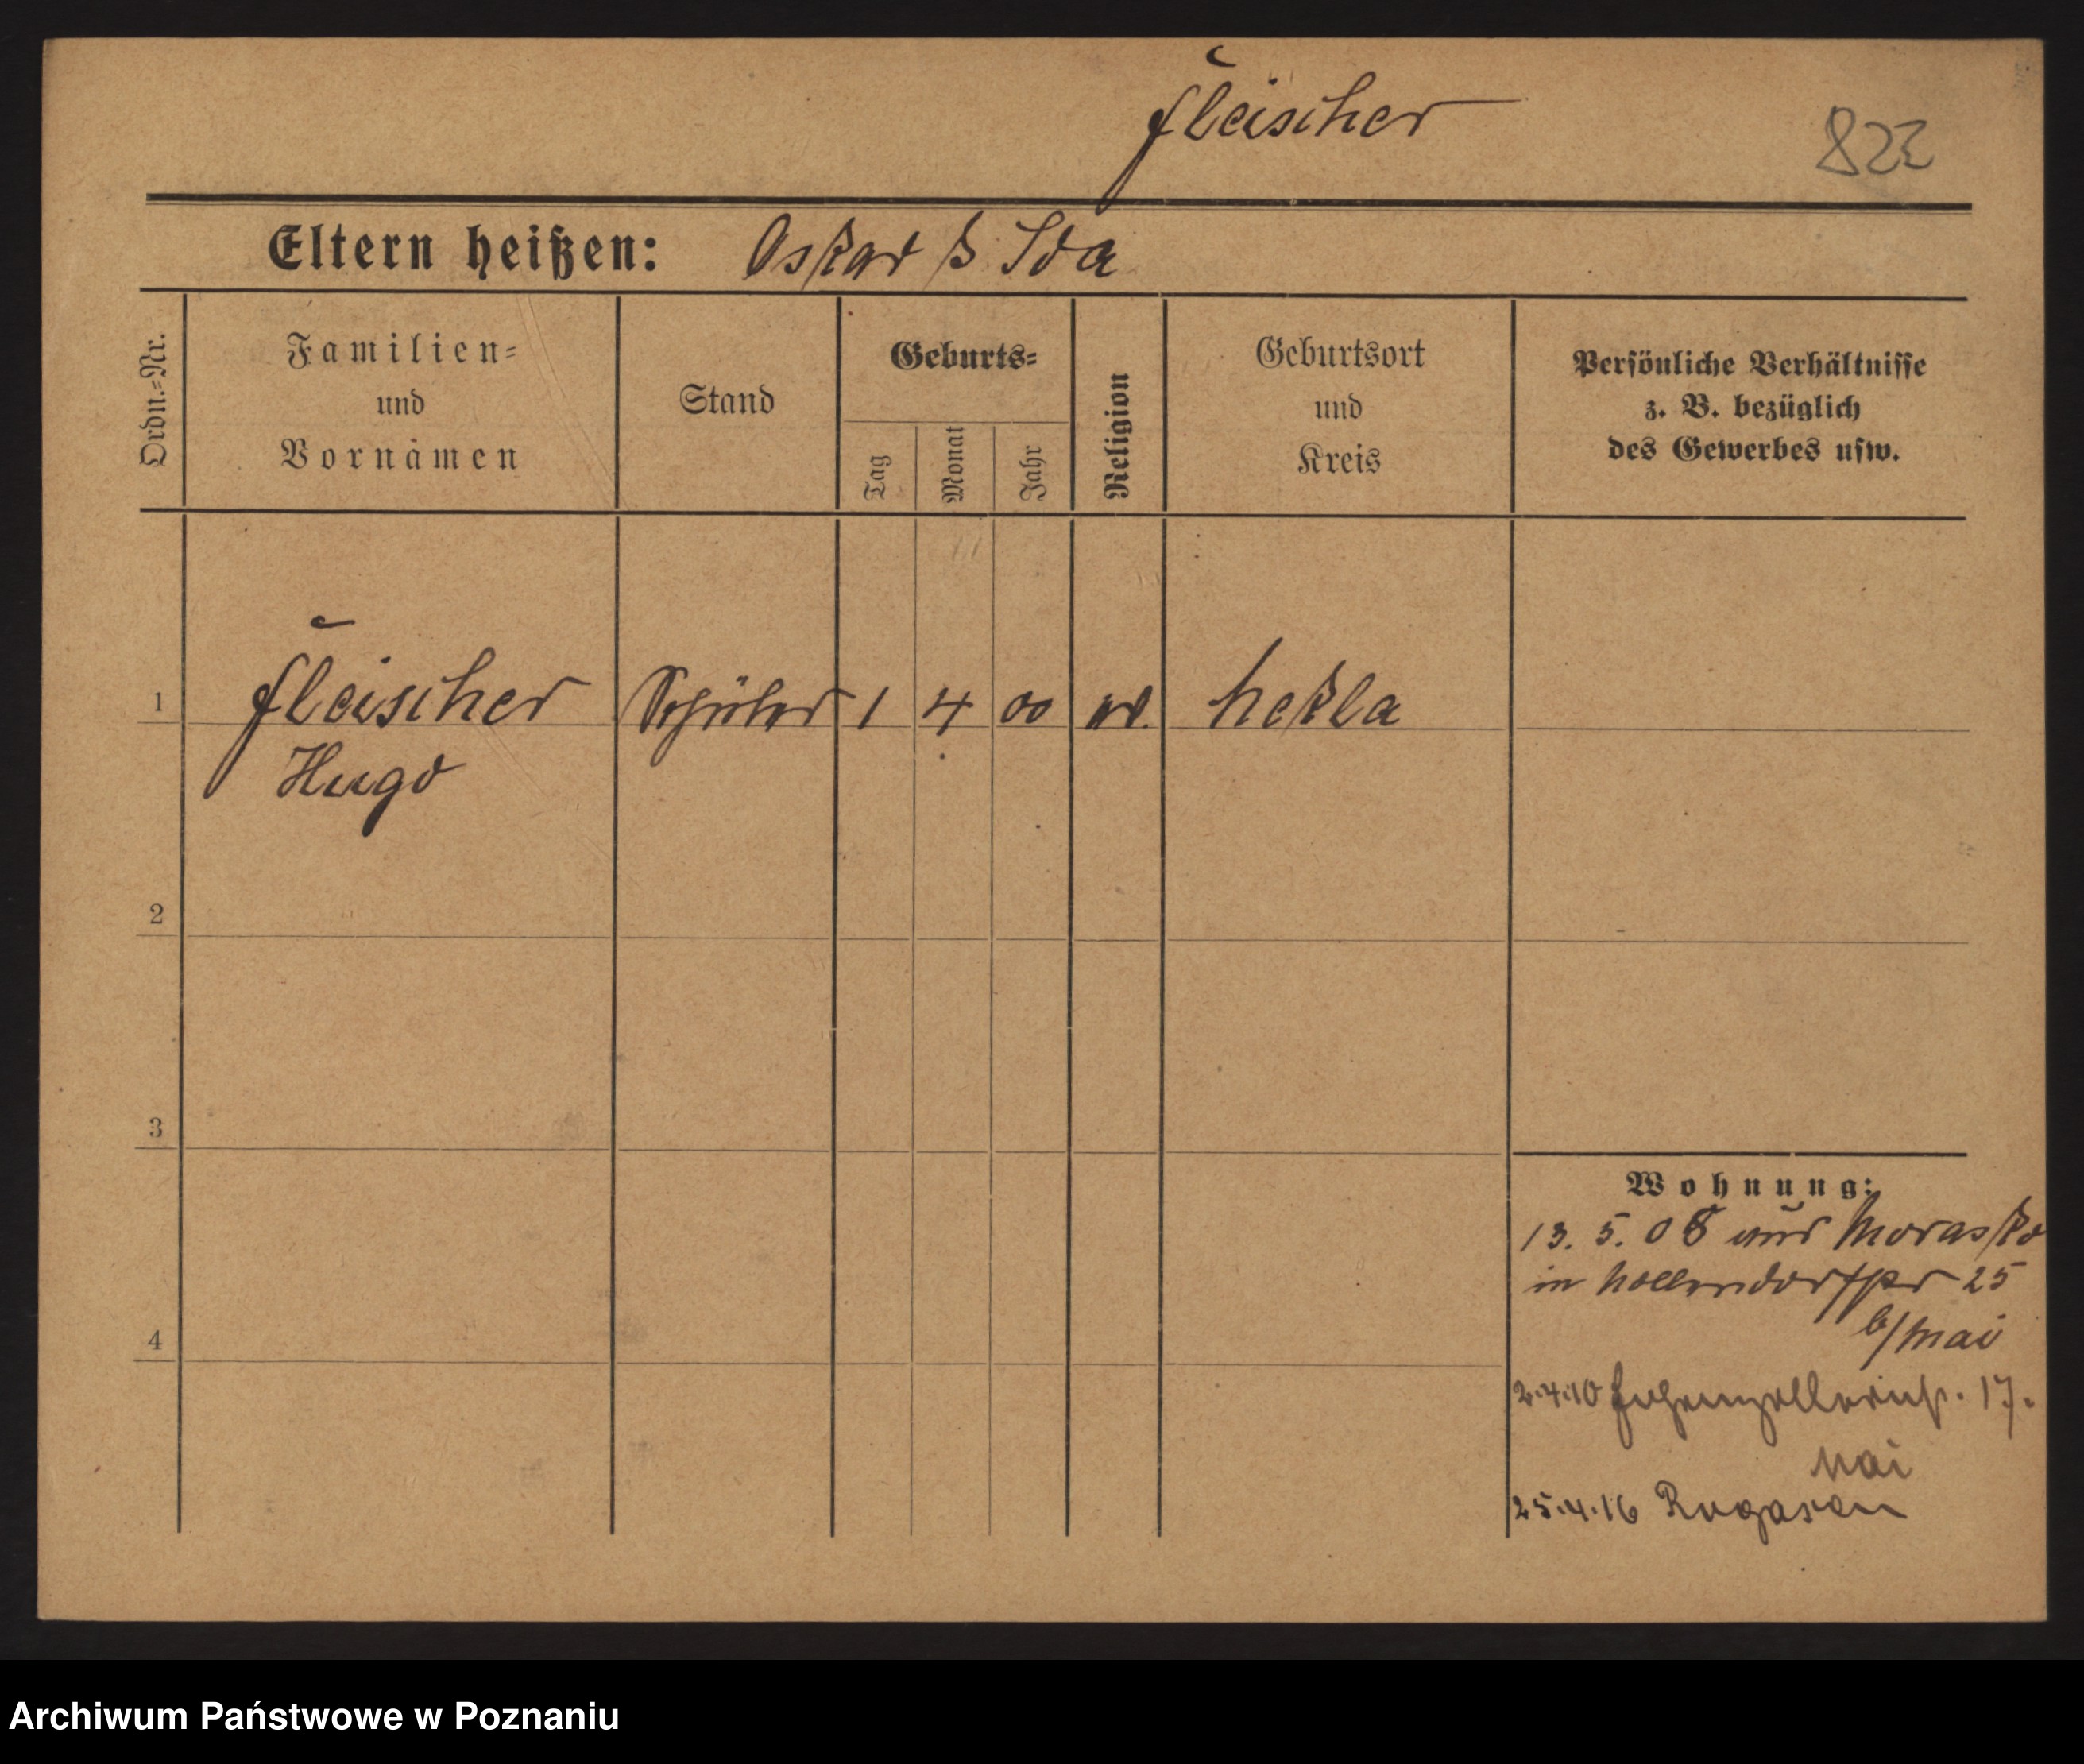 Fleischer
822
Eltern heißen: Oskar & Ida
Ordn.-Nr.
Familien-
und
Vornamen
Stand
Geburts-
Tag
Monat
Jahr
Religion
Geburtsort
und
Kreis
Persönliche Verhältnisse
z. B. bezüglich
des Gewerbes usw.
1 Fleischer Schüler 1 4 00 Nekla
Hugo
2
3
4
Wohnung:
13. 5. 08 aus Morasko
in Nollendorfstr 25
b/Mai
2.4.10 Hohenzollernstr. 17.
Mai
25.4.16 Rogasen
Archiwum Państwowe w Poznaniu